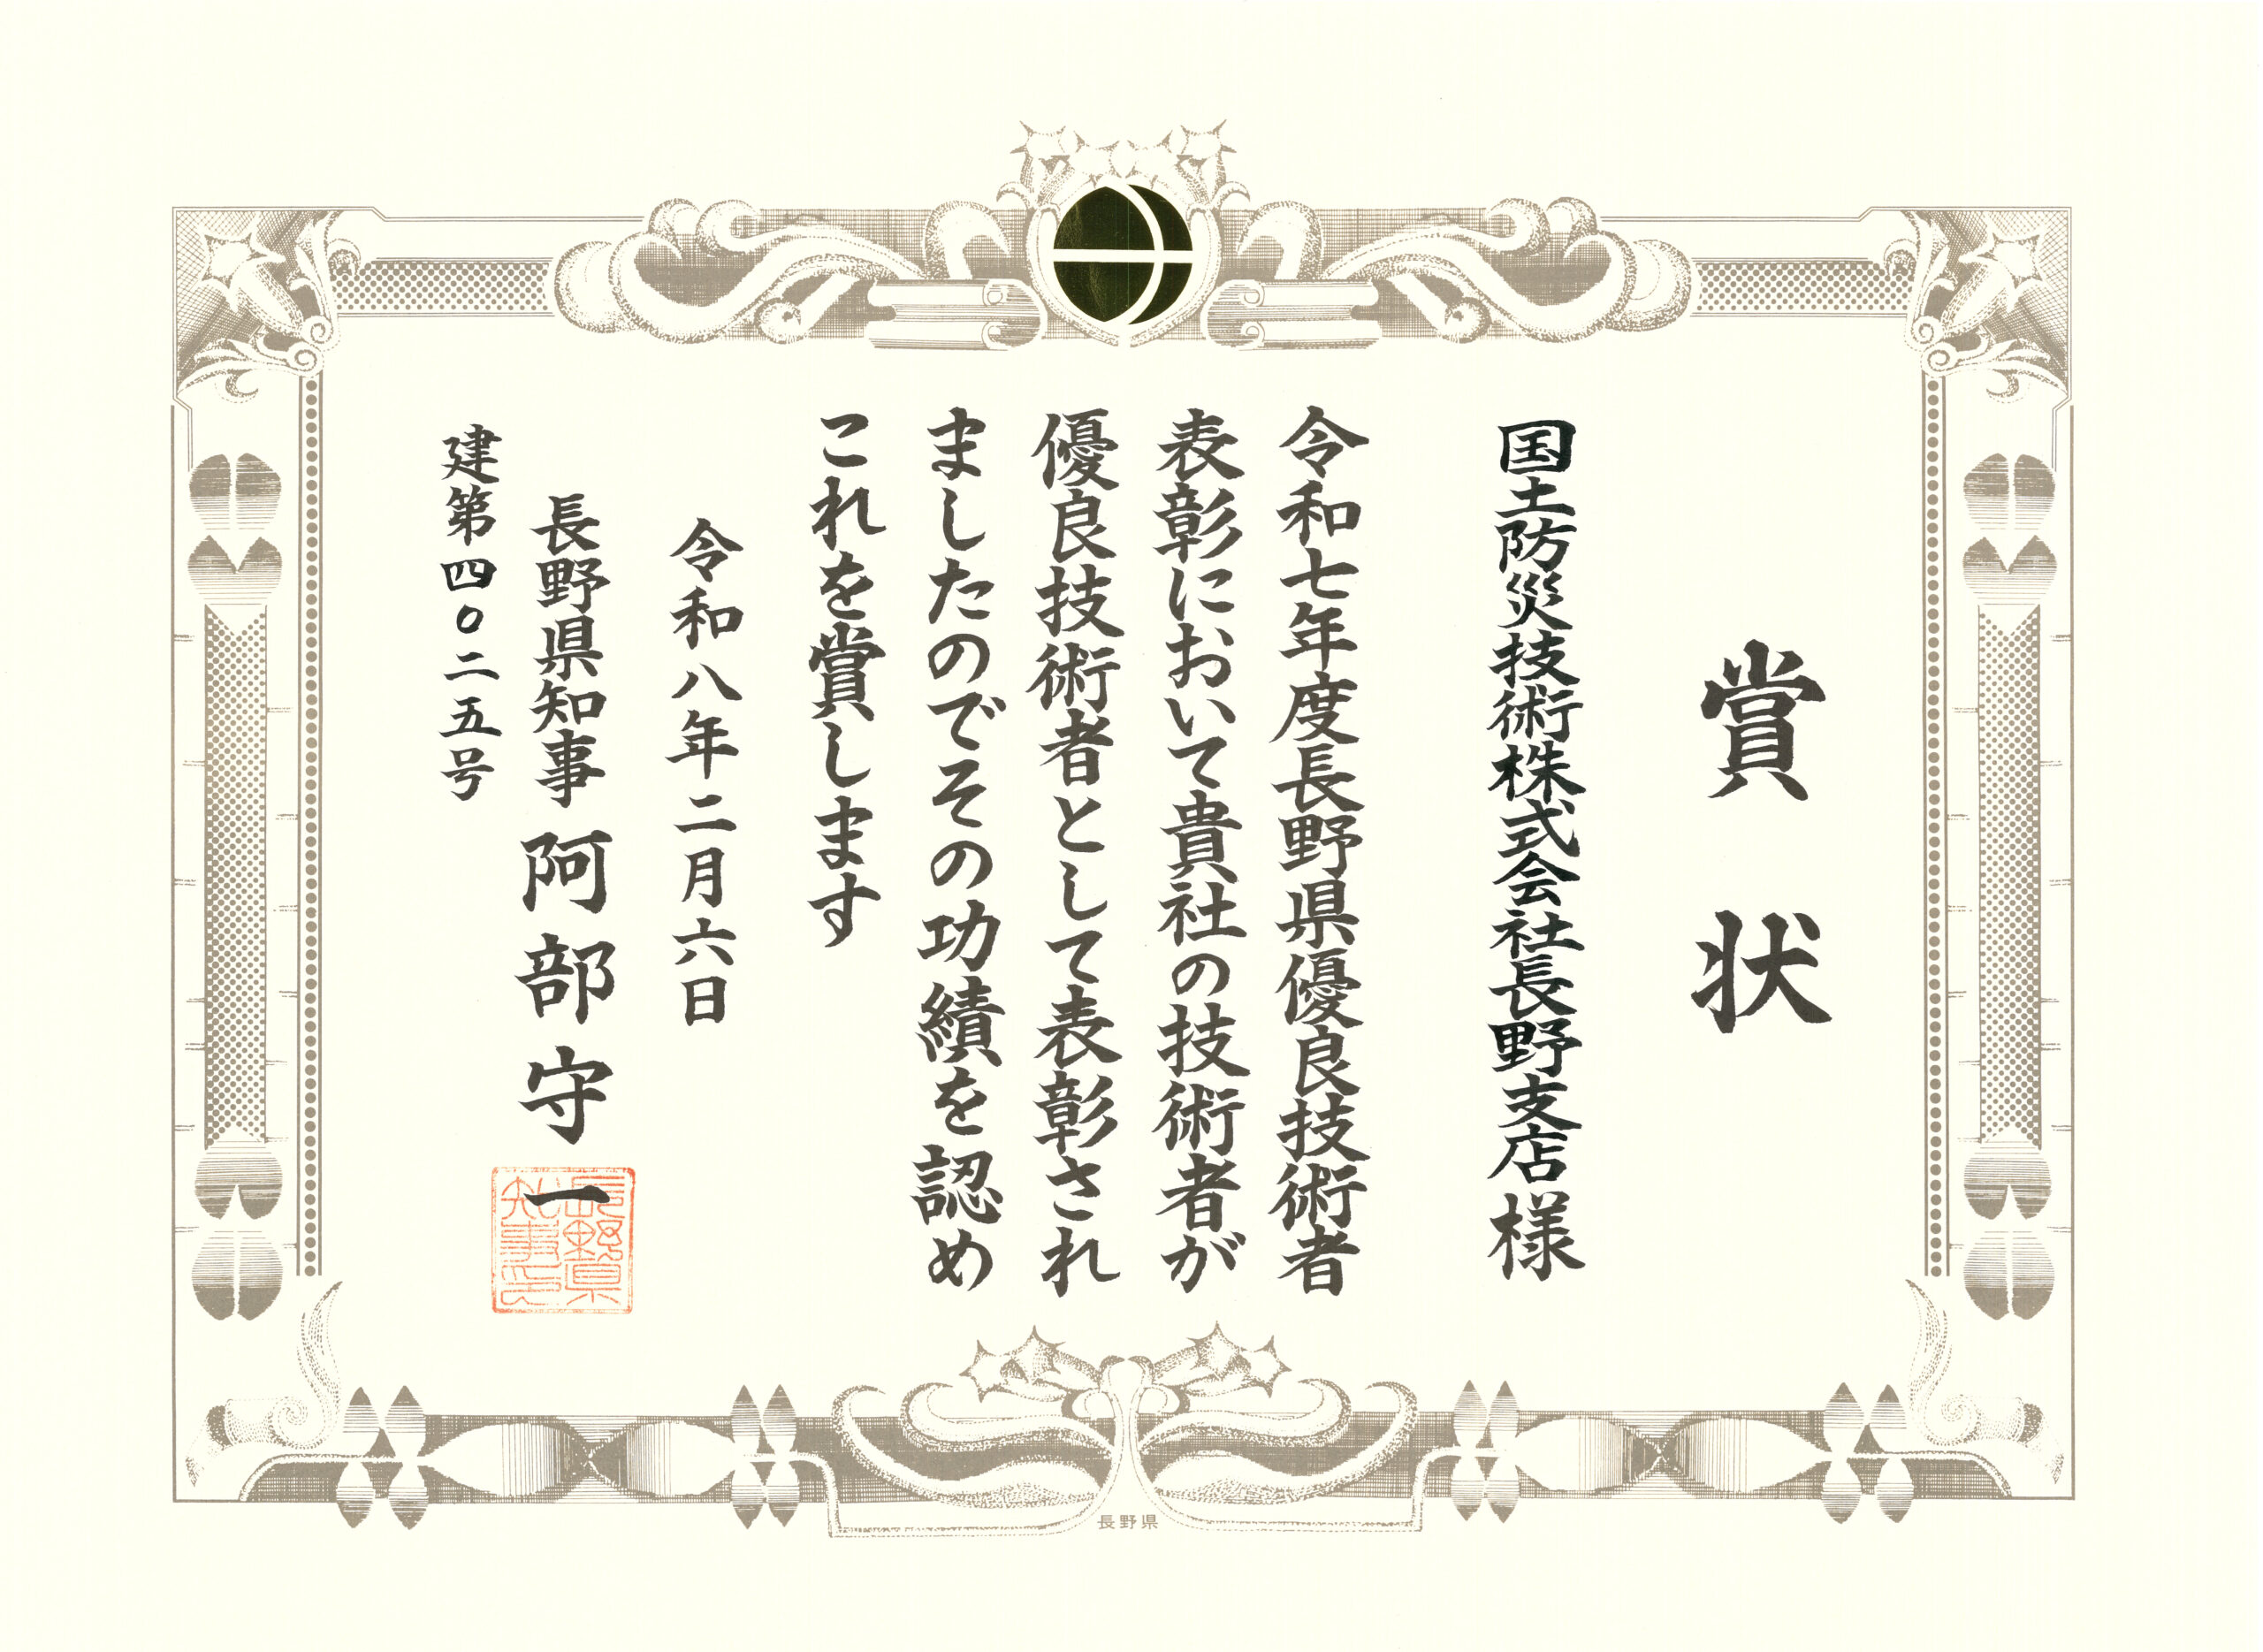 賞状
国土防災技術株式会社長野支店様
令和七年度長野県優良技術者
表彰において貴社の技術者が
優良技術者として表彰され
ましたのでその功績を認め
これを賞します
令和八年二月六日
長野県知事 阿部守一
長野県知事之印
建第四〇二五号
長野県